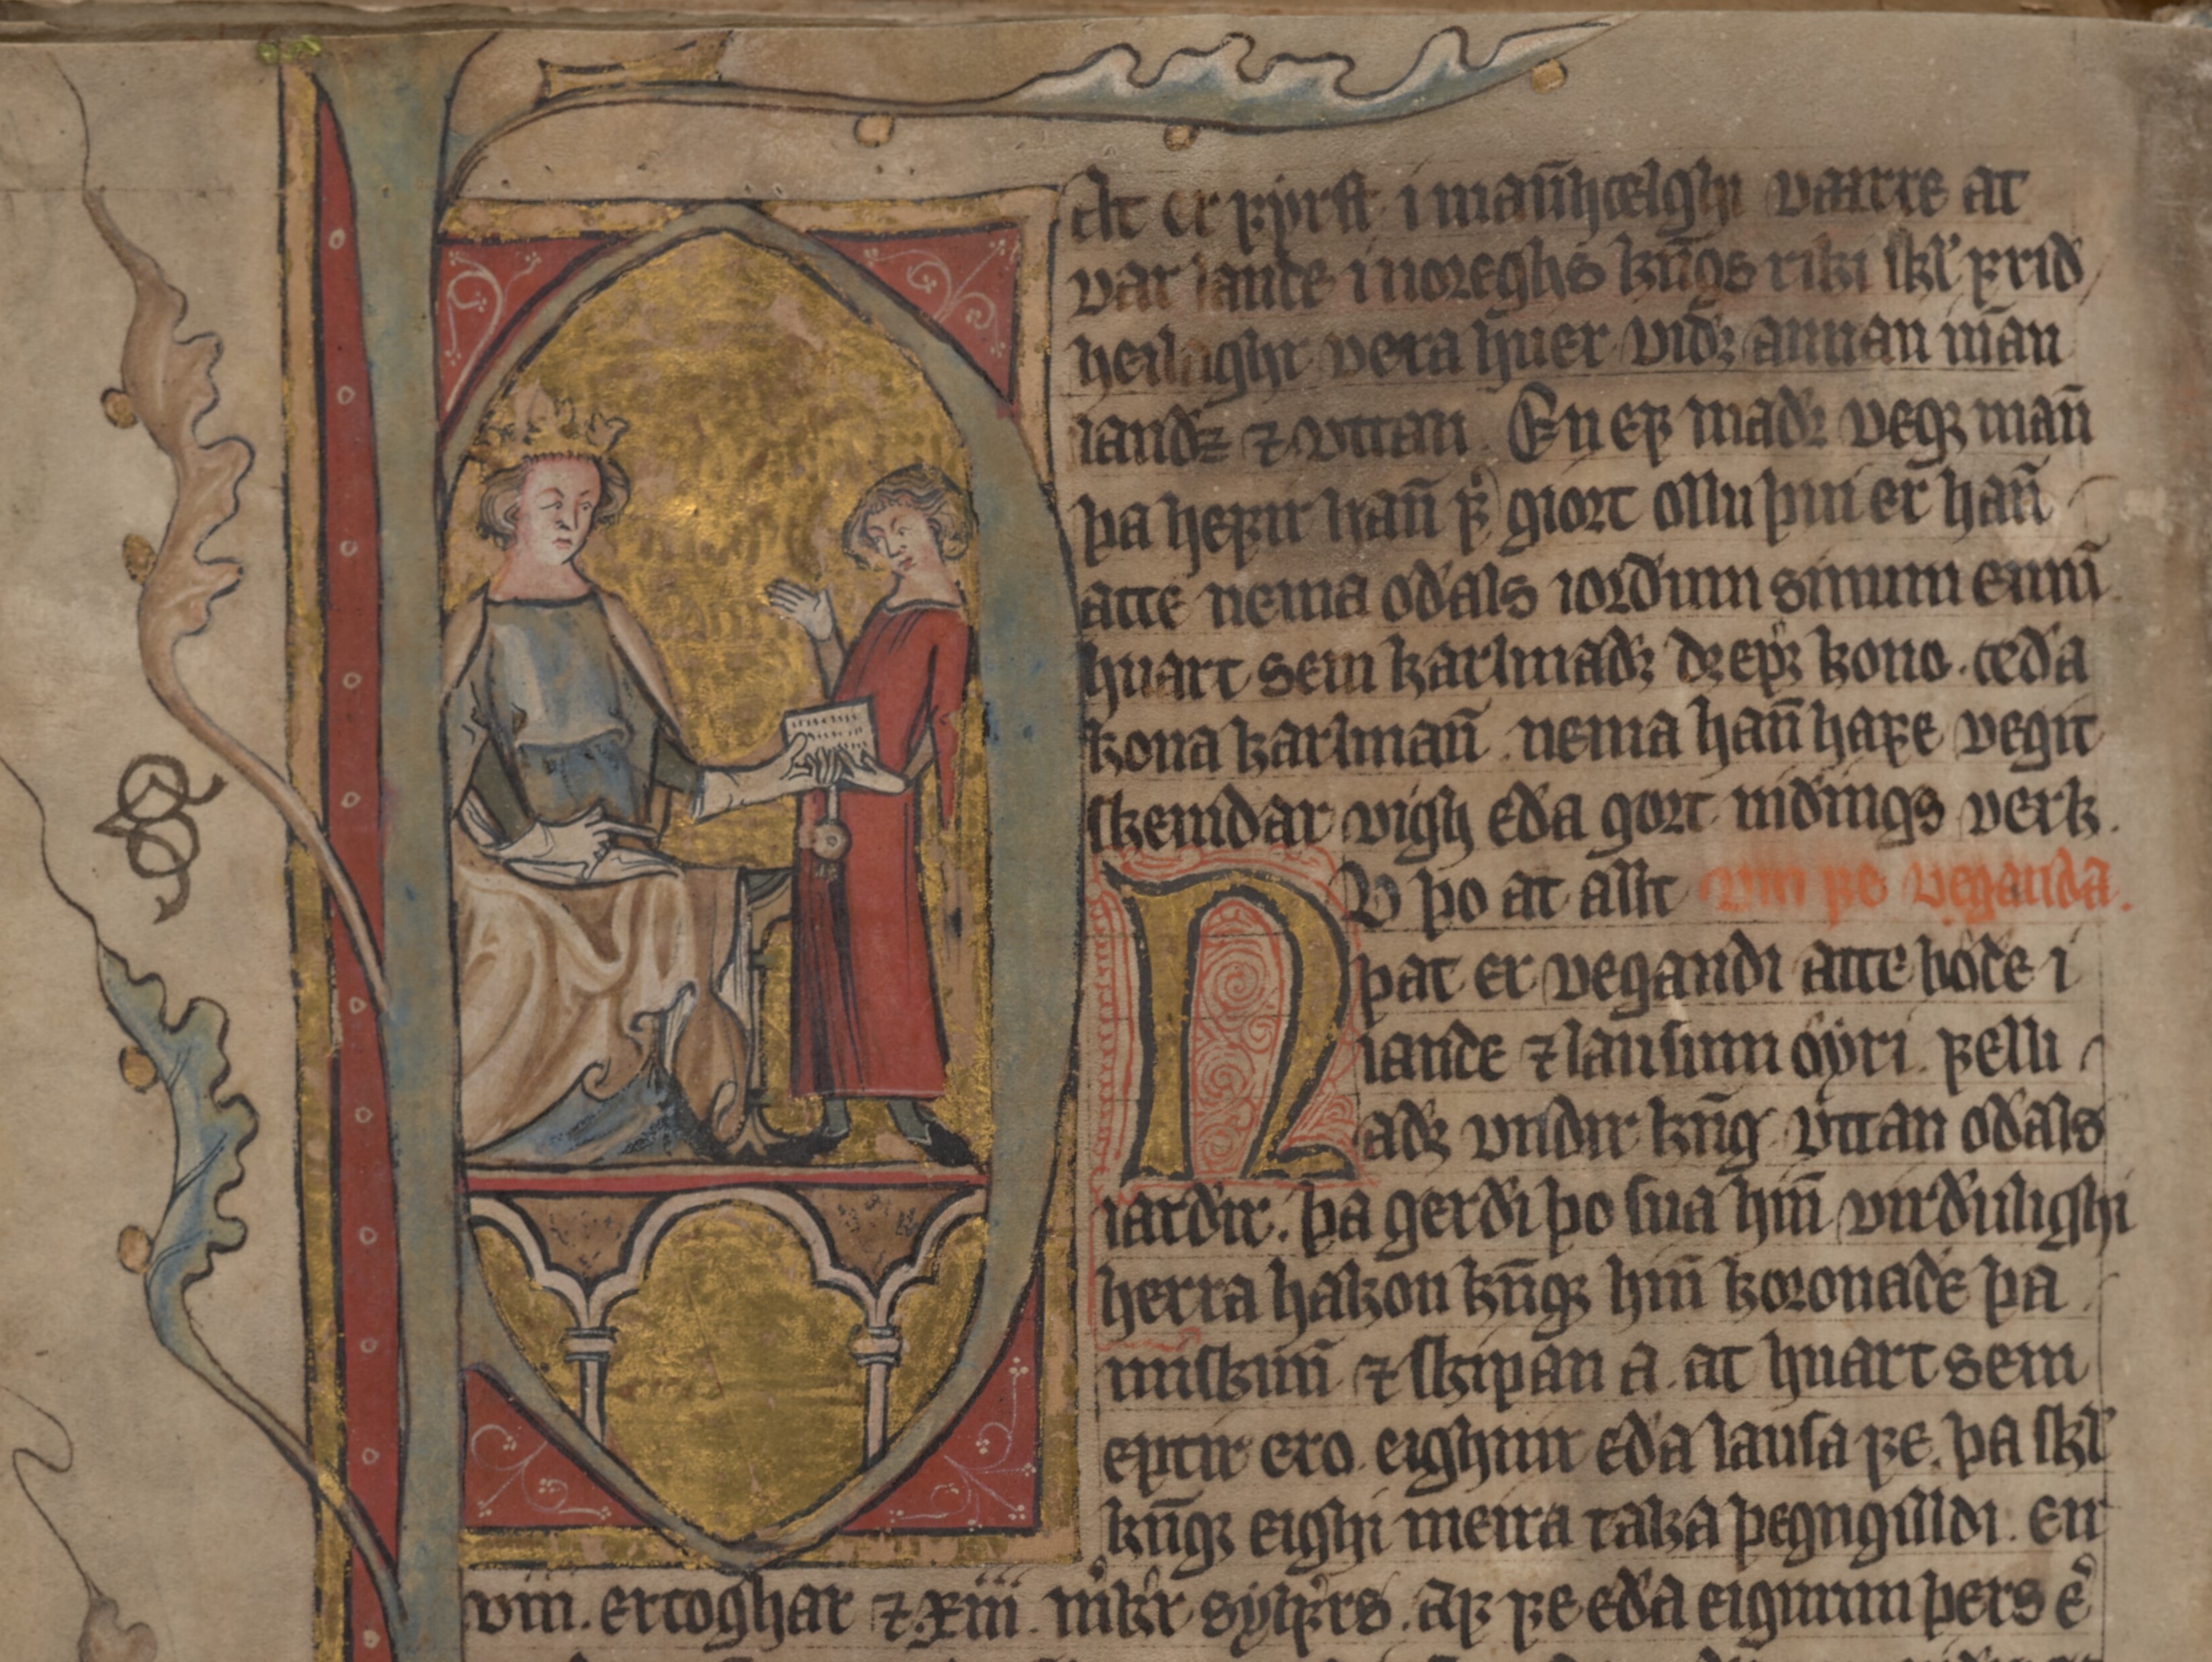 At er fyrst i man̄hælghi varre at
var lande i noreghs kn̄gs riki skl̓ frid
heilaghr vera huer vidꝛ annan īnan
landz ⁊ vttan. En ef madꝛ vegꝛ man̄
þa hefir han̄ f̓ giort ollu þui er han̄
atte nema odals iordum sinum einū.
huart sem karlmadꝛ dꝛepꝛ kono. æda
kona karlman̄. nema han̄ hafe vegit
skemdar vigh eda gort nidings verk.
NV þo at allt vm fe veganda.
þat er vegandi atte bǿde i
lande ⁊ lausum ǿyri. felli
adꝛ vndir kn̄g vttan odals
iardir. þa gerdi þo sua hin̄ virdulighi
herra hakon kn̄gꝛ hin̄ koronade þa
miskun̄ ⁊ skipan a. at huart sem
eptir ero eighnir eda lausa fe. þa skl̓
kn̄gꝛ eighi meira taka þegngilldi. en
viii. ertoghar ⁊ xiii m̓kr sylfrs. af fe eda eignum þers e̓